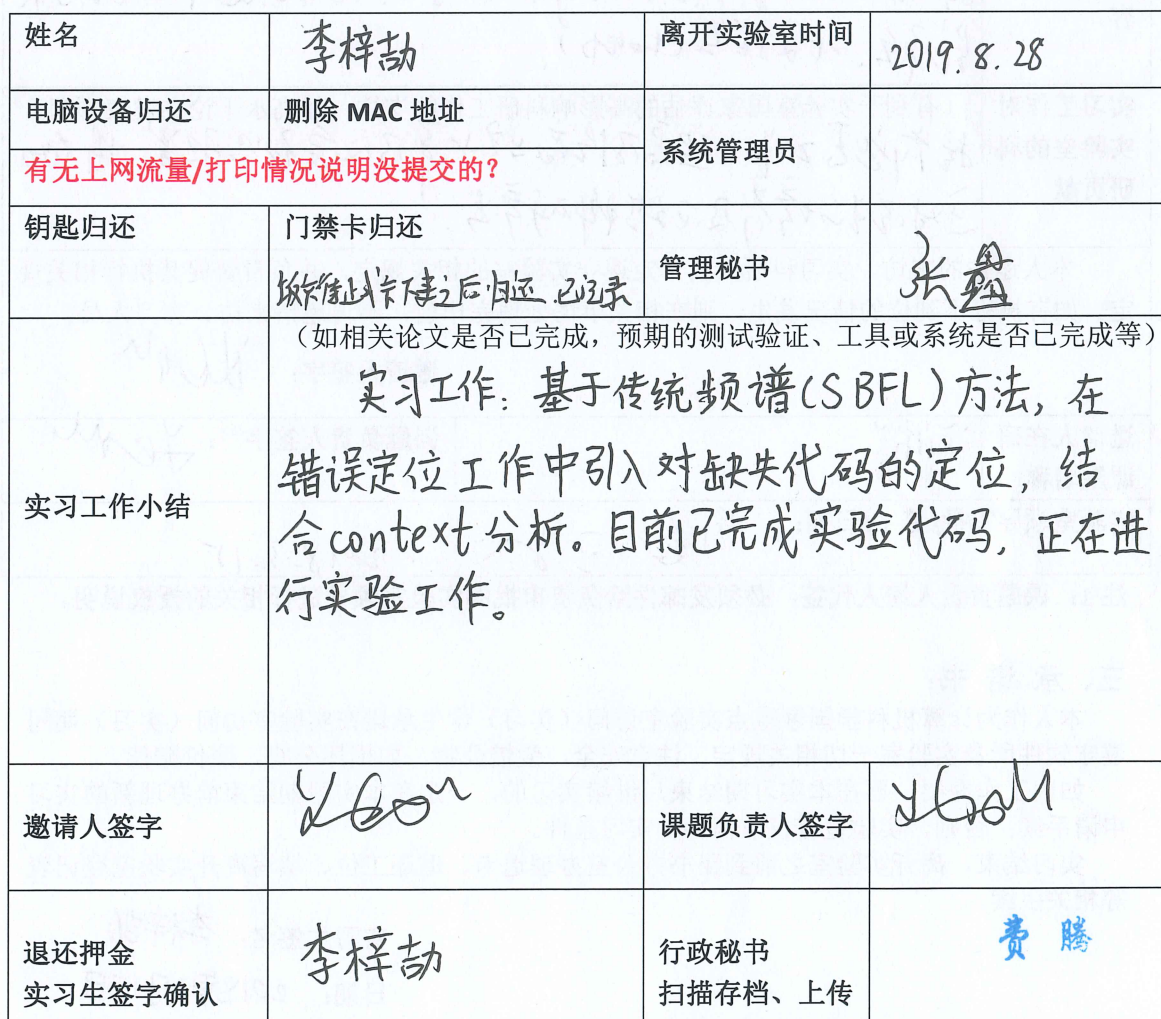 姓名 李梓劼 离开实验室时间 2019.8.28
电脑设备归还 删除 MAC 地址
系统管理员
有无上网流量/打印情况说明没提交的?
钥匙归还 门禁卡归还
管理秘书 张
归还 已记录
(如相关论文是否已完成,预期的测试验证、工具或系统是否已完成等)
实习工作小结
实习工作:基于传统频谱(SBFL)方法,在
错误定位工作中引入对缺失代码的定位,结
合context分析。目前已完成实验代码,正在进
行实验工作。
邀请人签字 课题负责人签字
退还押金
实习生签字确认
李梓劼
行政秘书
扫描存档、上传
费腾